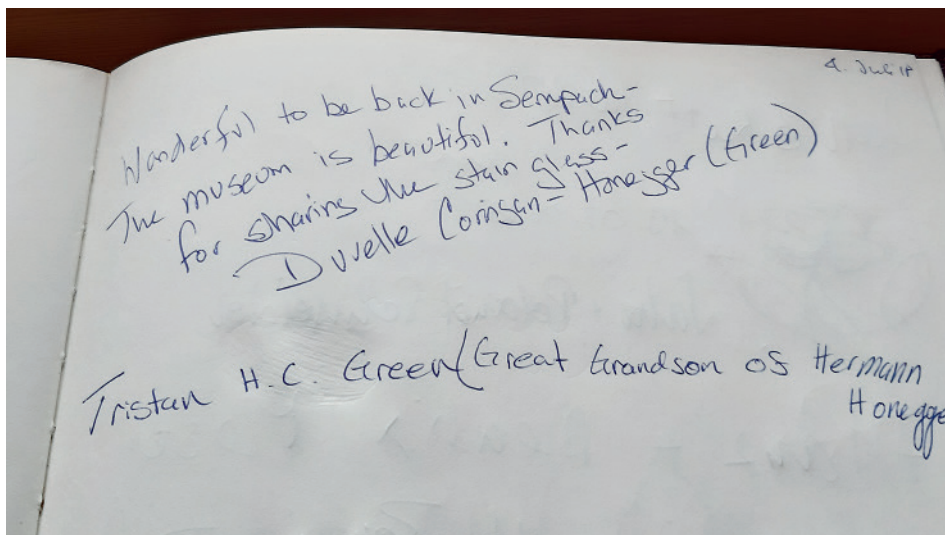 4. Juli 18
Wonderful to be back in Sempach-
The museum is beautiful. Thanks
for sharing the stain glass-
Duvelle Corrigan-Honegger (Green)
Tristan H.C. Green (Great Grandson of Hermann
Honegge